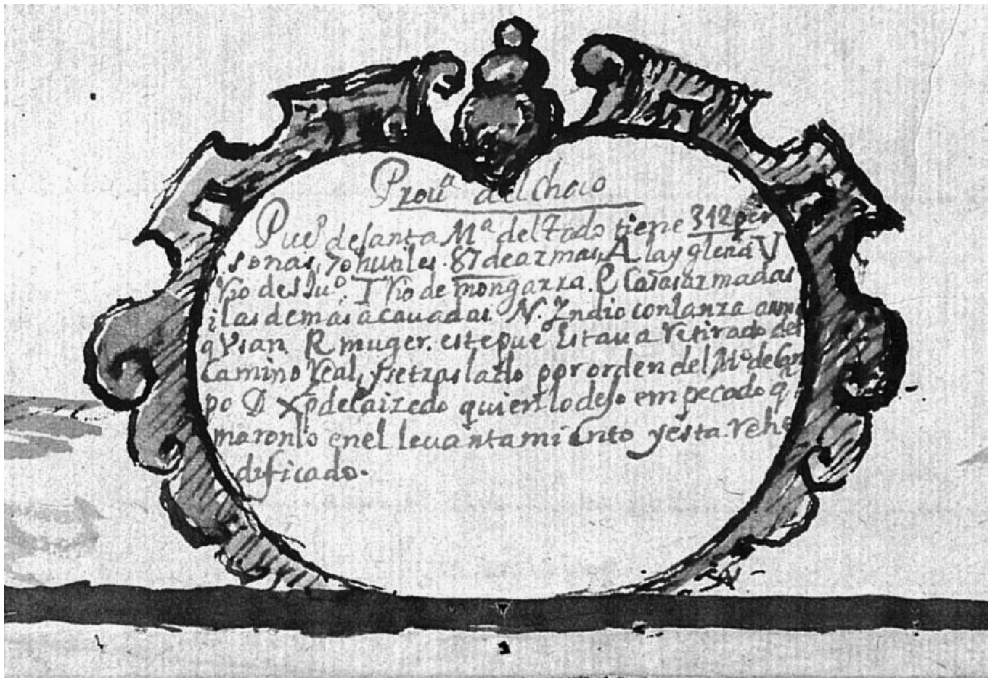 Prouª del choco
Pueº de santa Mª del Zado tiene 312 per
sonas, 70 hutiles. 87 de armas, A la yglesia V
Rio de S Juº. T Rio de mongarra. P casas armadas
i las demas acauadas N. Indio con lanza arma
q Vsan R muger. este pueº Estaua retirado del
Camino Real, y se traslado por orden del Mº de Cam
po D Xpl de Caizedo quien lo dejo empecado q
maronlo en el leuantamiento y esta rehe
dificado.